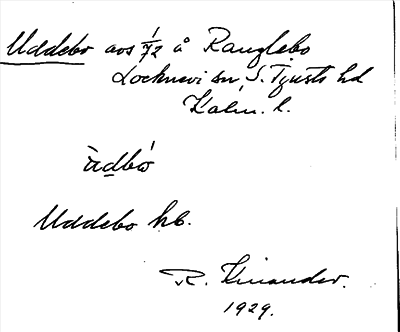 Uddebo avs 1/72 å Ranglebo
Locknevi sn, S. Tjusts hd
Kalm. l.
ùdbò
Uddebo hb.
R. Kinander.
1929.